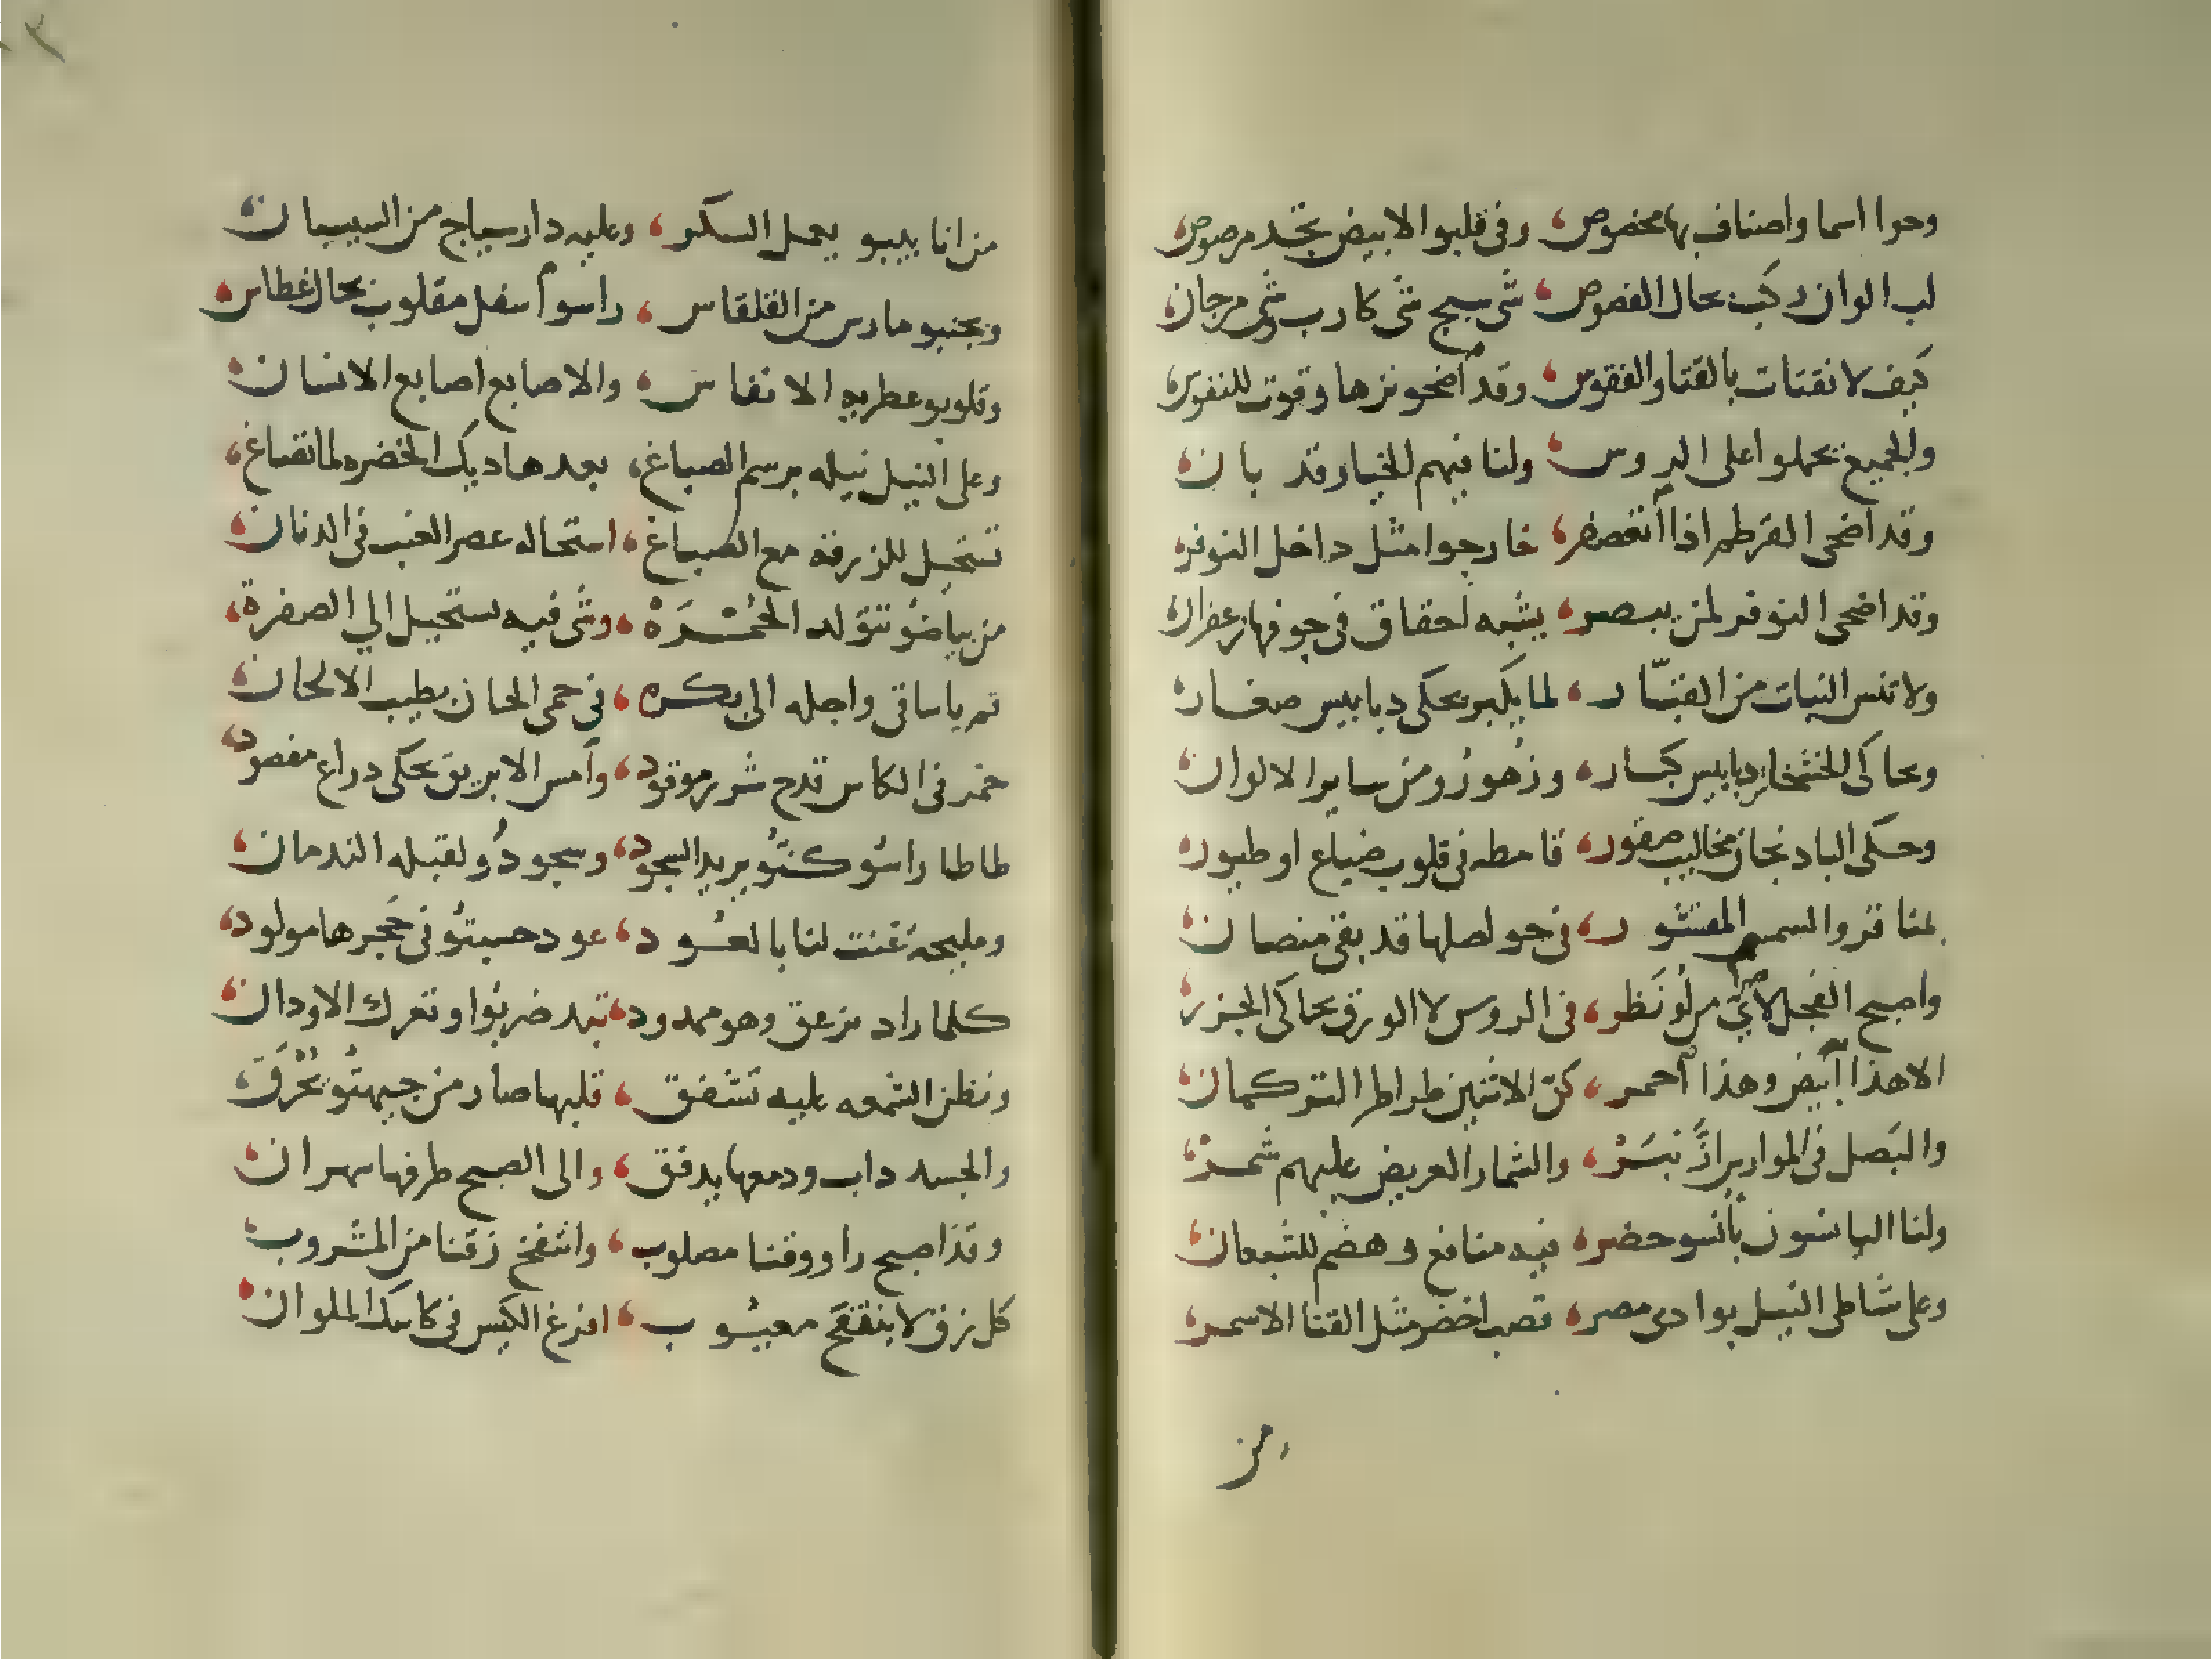 وحوا اسما واصناف بها مخصوص، وفى قلبوا الابيض تجد مرصوص،
لب الوان ركب بحال الفصوص، شى سبج شى كارب شى مرجان،
كيف لا نقتات بالقتا والفقوس، وقد أضحو نزها وقوت للنفوس،
وللجميع نحملوا على الروس، ولنا فيهم للخيار قد بان،
وقد اضحى القرطم اذا أنعصفر، خارجوا مثل داخل النوفر،
وقد اضحى النوفر لمن يبصر، يشبه احقاق فى جوفها زعفران،
ولا تنس النبات من القنبّار، لما يكبر يحكى دبابيس صغار،
وبحاكى الخشخاش دبابيس كبار، وزُهورُ ومن ساير الالوان،
وحكى البادنجان مخاليب صقور، قامطه فى قلوب ضباع او طيور،
لمنا قروا السمسم المقشور، فى حواصلها قد بقى منصان،
واصبح الفجل لاىّ من لُو نَظر، فى الروس لا الورق يحاكى الجزر،
الا هذا أبيض وهذا أحمر، كنّ الاثنين طراطر التركمان،
والبَصل فى الموارير انَّ نبَسَرْ، والشمار العريض عليهم شمرْ،
ولنا اليانسون بأنسو حضر، فيه منافع وهضم للشبعان،
وعلى شاطى النيل بوادى مصر، قصب اخضر مثل القنا الاسمر،
من
من انابيبو يعمل السكر، وعليه دار سياج من السيسبان،
وبجنبو مارس من القلقاس، راسو أسفل مقلوب بحال غطاس،
وقلوبو عطريه الانفاس، والاصابع اصابع الانسان،
وعلى النيل نيله برسم الصباغ، بعد هاديك الخضره لما تصاغ،
تستحيل للزرقه مع الصباغ، استحاله عصر العنب فى الدنان،
من بياضُو تتولد الحُمْرَهْ، وشى فيه يستحيل الي الصفرة،
قم يا ساقى واجله الى بكره، فى حمى الحان بطيب الالحان،
خمر فى الكاس قدح شرر موقود، وأمس الابريق يحكى دراع مفصود،
طاطا راسُو كنتُّو يريد السجود، وسجودُو لقبله الندمان،
ومليحة غنت لنا بالعود، عود حسبتُو فى حَجرها مولود،
كلما راد يزعق وهو ممدود، تبد ضربوا وتعرك الاودان،
ونظن الشمعه عليه تشفق، قلبها صار من جيهتُو يُحْرَق،
والجسد داب ودمعها يدفق، والى الصبح طرفها سهران،
وقد اصبح راووقنا مصلوب، وانتفخ زقنا من المشروب،
كل زق لا ينتفخ معيُوب، افرغ الكيس فى كاسك الملوان،